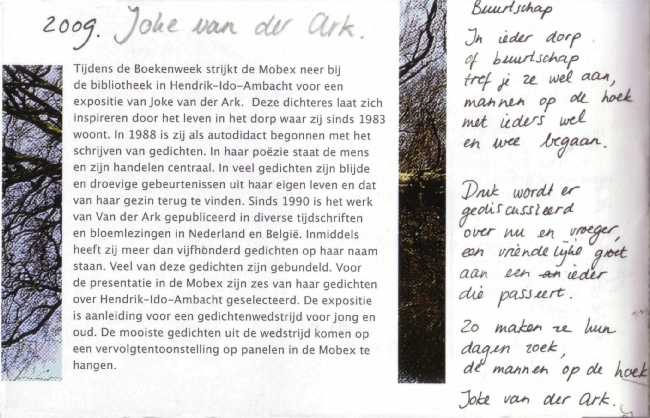 2009. Joke van der Ark.
Tijdens de Boekenweek strijkt de Mobex neer bij
de bibliotheek in Hendrik-Ido-Ambacht voor een
expositie van Joke van der Ark.  Deze dichteres laat zich
inspireren door het leven in het dorp waar zij sinds 1983
woont. In 1988 is zij als autodidact begonnen met het
schrijven van gedichten. In haar poëzie staat de mens
en zijn handelen centraal. In veel gedichten zijn blijde
en droevige gebeurtenissen uit haar eigen leven en dat
van haar gezin terug te vinden. Sinds 1990 is het werk
van Van der Ark gepubliceerd in diverse tijdschriften
en bloemlezingen in Nederland en België. Inmiddels
heeft zij meer dan vijfhonderd gedichten op haar naam
staan. Veel van deze gedichten zijn gebundeld. Voor
de presentatie in de Mobex zijn zes van haar gedichten
over Hendrik-Ido-Ambacht geselecteerd. De expositie
is aanleiding voor een gedichtenwedstrijd voor jong en
oud. De mooiste gedichten uit de wedstrijd komen op
een vervolgtentoonstelling op panelen in de Mobex te
hangen.
Buurtschap
In ieder dorp
of buurtschap
tref je ze wel aan,
mannen op de hoek
met ieders wel
en wee begaan.
Druk wordt er
gediscussieerd
over nu en vroeger,
een vriendelijke groet
aan een an ieder
die passeert.
Zo maken ze hun
dagen zoek,
de mannen op de hoek
Joke van der Ark.